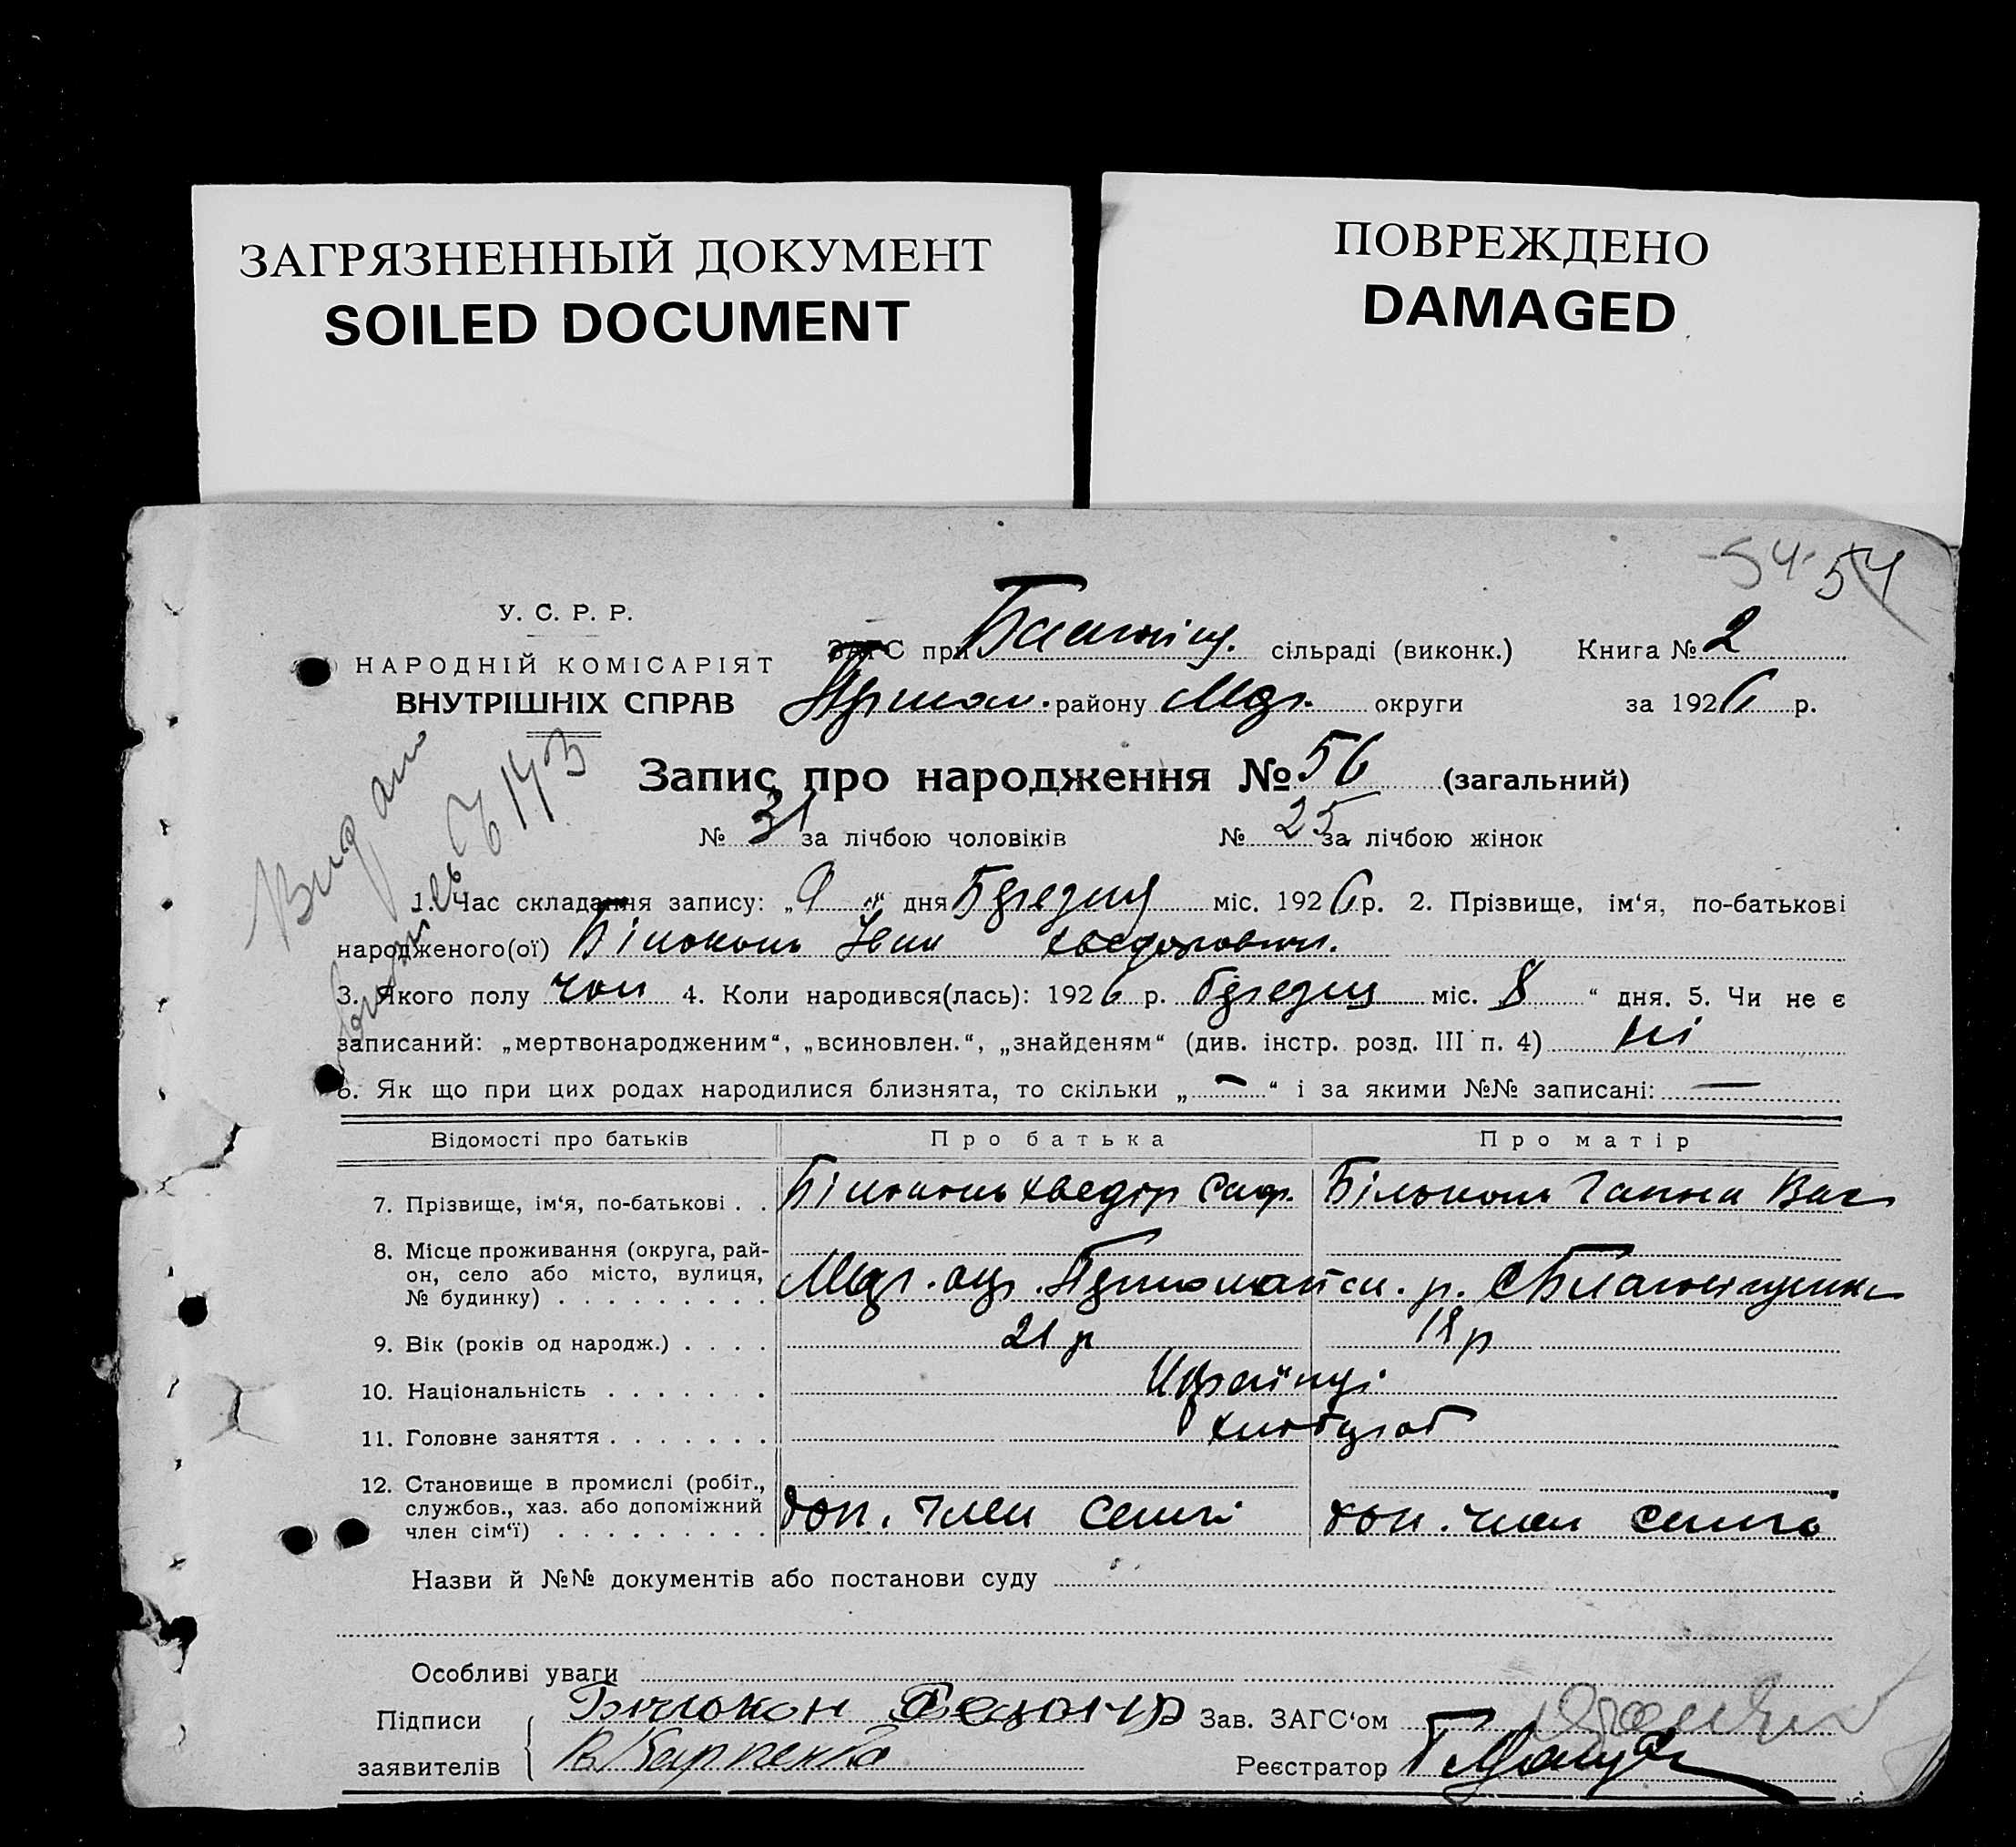 ЗАГРЯЗНЕННЫЙ ДОКУМЕНТ
SOILED DOCUMENT
ПОВРЕЖДЕНО
DAMAGED
54 54
У. С. Р. Р.
НАРОДНІЙ КОМІСАРІЯТ
ВНУТРІШНІХ СПРАВ
ЗАГС при сільраді (виконк.) Книга № 2
району округи за 1926 р.
Запис про народження № 56 (загальний)
№ 31 за лічбою чоловіків № 25 за лічбою жінок
1. Час складання запису: „9“ дня Березня міс. 1926 р. 2. Прізвище, ім‘я, по-батькові
народженого(ої) Білоконь Іван Хведорович.
3. Якого полу чол 4. Коли народився(лась): 1926 р. березня міс. 8 “ дня. 5. Чи не є
записаний: „мертвонародженим“, „всиновлен.“, „знайденям“ (див. інстр. розд. III п. 4) ні
6. Як що при цих родах народилися близнята, то скільки „—“ і за якими №№ записані: —
Відомості про батьків Про батька Про матір
7. Прізвище, ім‘я, по-батькові . . Білоконь Хведір Білоконь Ганна Вас
8. Місце проживання (округа, рай-
он, село або місто, вулиця,
№ будинку) . . . . . . . . . Мел. окр. Першомайськ. р. с Благовіщенка
9. Вік (років од народж.) . . . . 21 р 18 р
10. Національність . . . . . . . Українці
11. Головне заняття . . . . . . . хлібороб
12. Становище в промислі (робіт.,
службов., хаз. або допоміжний
член сім‘ї) . . . . . . . . . доп. член семі доп. член семі
Назви й №№ документів або постанови суду
Особливі уваги
Підписи
заявителів
Білокон
Карпенко
Зав. ЗАГС‘ом
Реєстратор